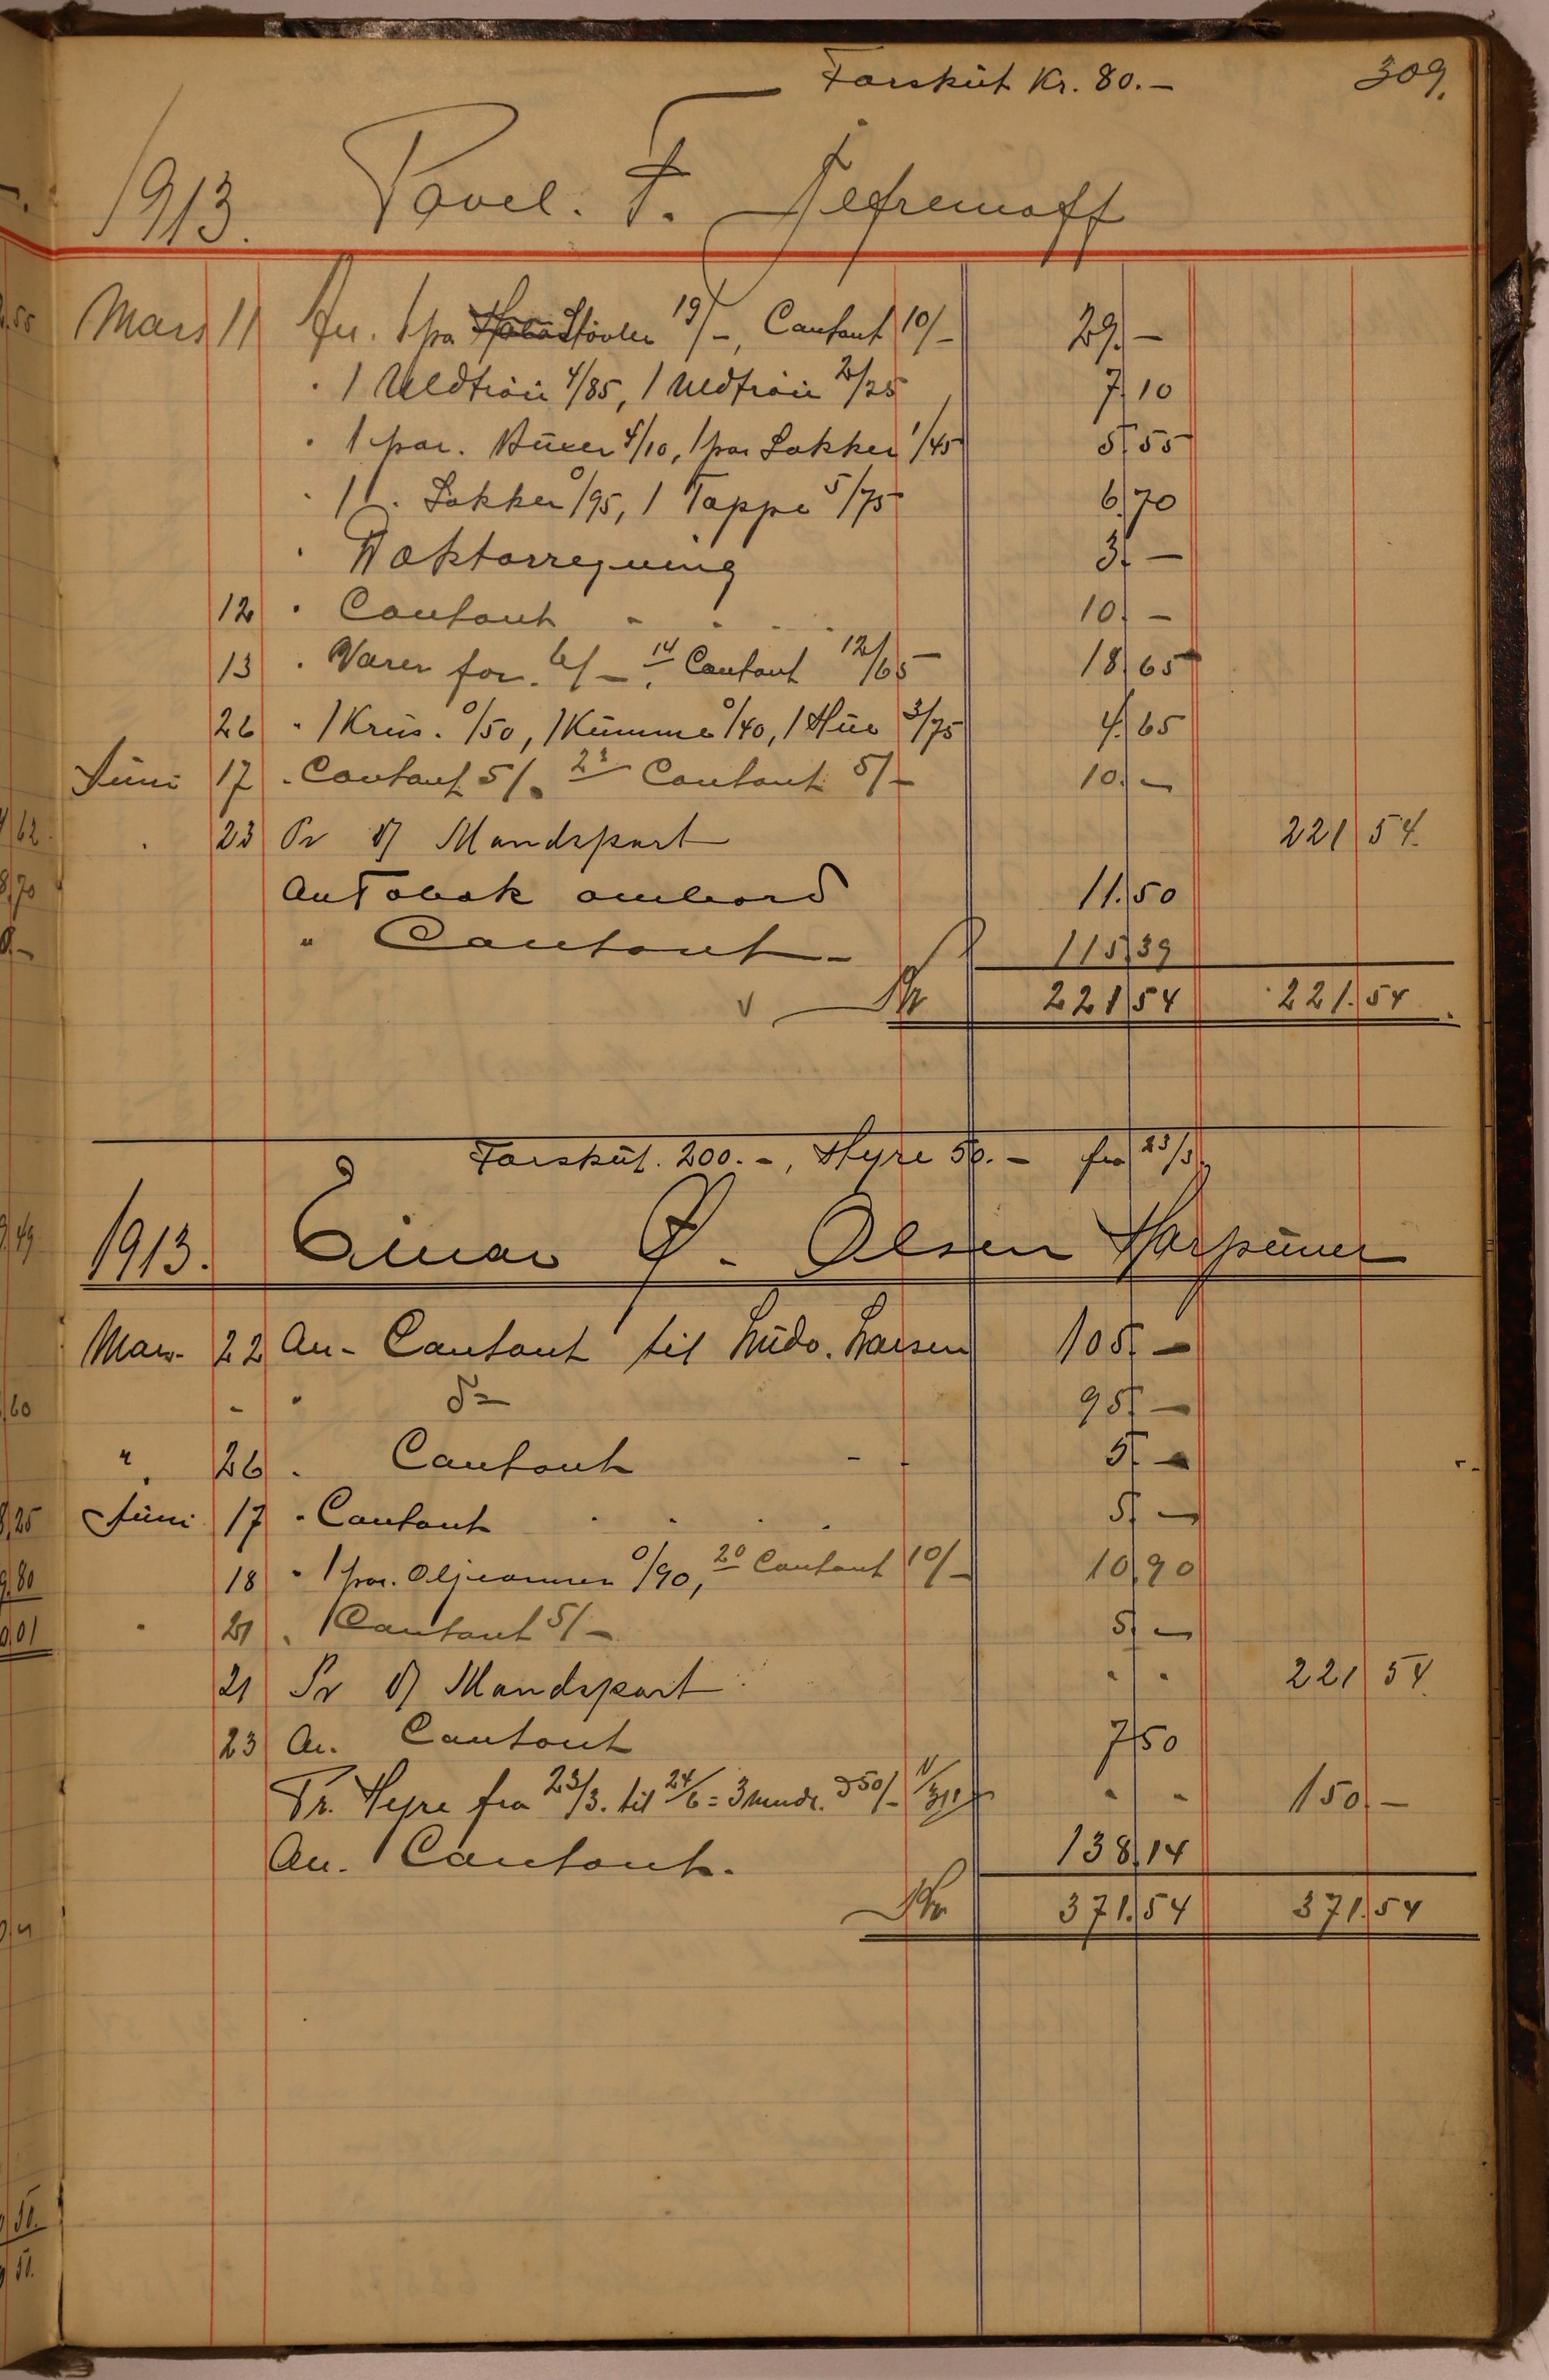 Forsküt Kr. 80.- 309.
1913. Pavel. F. Jefremoff
Mars 11 An. 1 pa Støvler 19/-, Contant 10/- 29.-
" 1 Uldtröie 4/85, 1 Uldtröie 2/25 7,10
" 1 par. Büxer 4/10, 1 par Sokker 1/45 5,55
" 1 " Sokker 0/95, 1 Tæppe 5/75 6,70
" Doktorregning 3,-
12 " Contant 10.-
13 " Varer for. 6/-, 14 Contant 12/65 18,65
26 " 1 Krüs. 0/50, 1 Kümme 0/40, 1 Hüe 3/75 4,65
Jüni 17 " Contant 5/-, 23 Contant 5/- 10.-
" 23 Pr Mandspart 221 54.
An Tobak ombord 11.50
" Contant - 115,39
Kr 221 54 221.54
Forsküt. 200.-, Hyre 50.- fra 23/3
1913. Einar Olsen Harpüner
Mars 22 An- Contant til Lüdv. Larsen 105,-
- " do 95,-
" 26 " Contant 5,-
Jüni 17 " Contant 5,-
18 " 1 par. Oljeærmer 0/90, 20 Contant 10/- 10,90
" 21 " Contant 5/- 5,-
21 Pr Mandspart " " 221 54.
23 An. Contant 7,50
Pr. Hyre fra 23/3. til 24/6 = 3 mndr. 50/- " " 150.-
An. Contant. 138,14
Kr 371.54 371.54